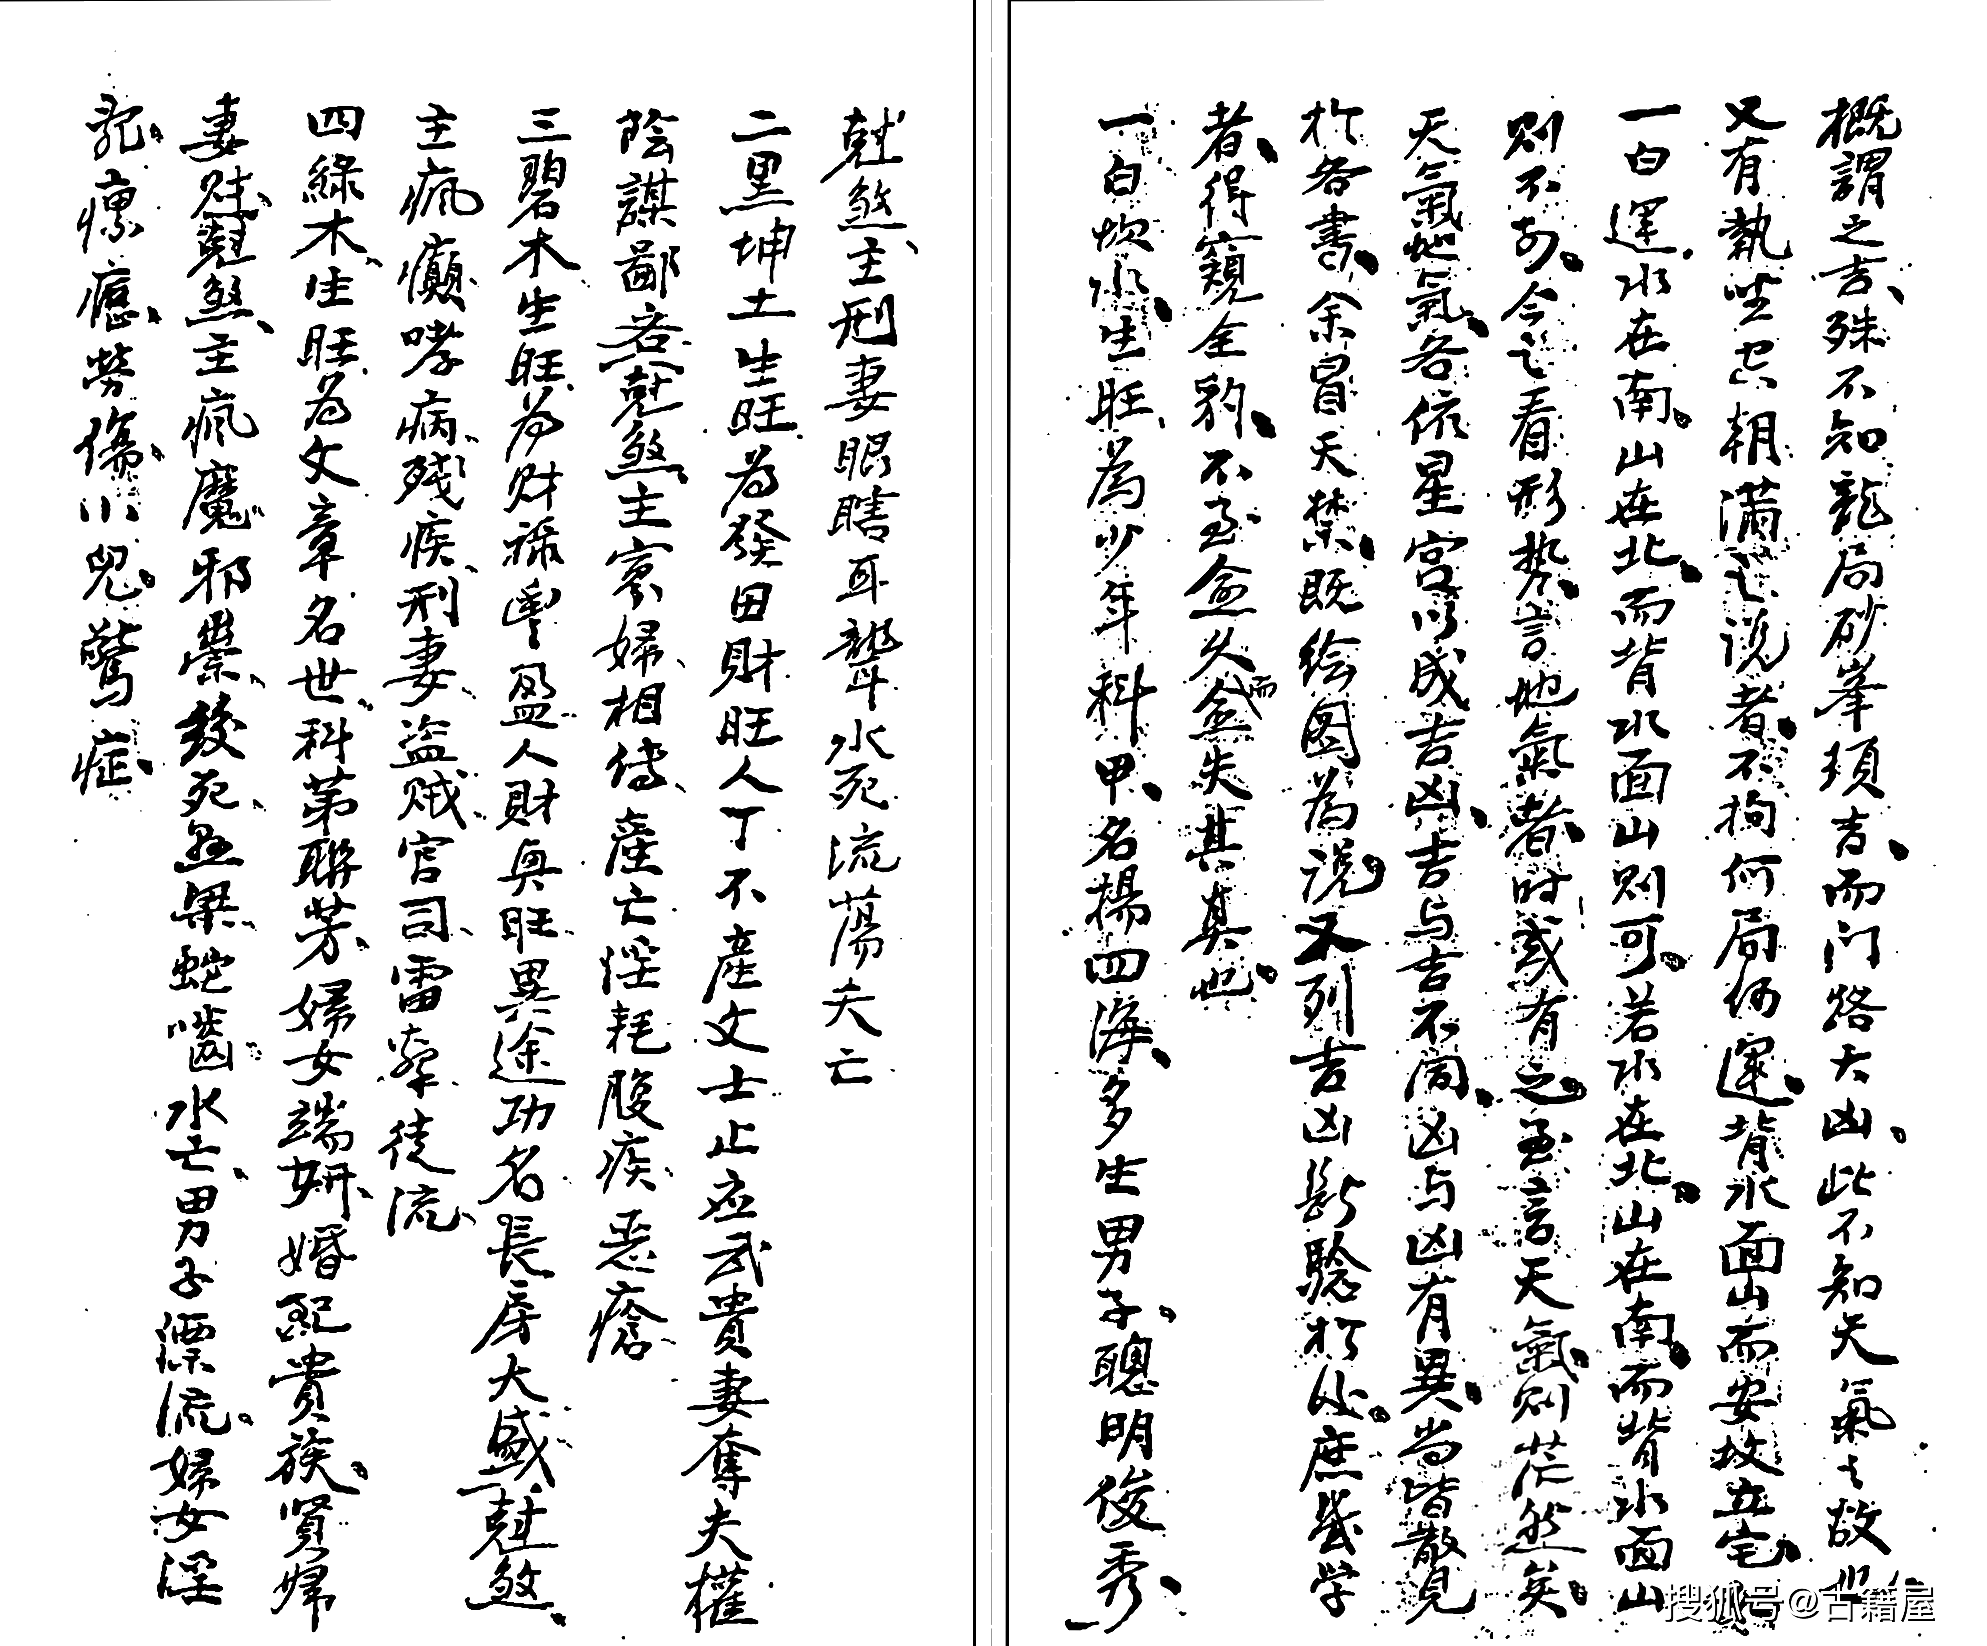 概謂之吉殊不知龍局砂峯須吉而门路大凶此不知天氣之故也
又有執坐空朝满之说者不拘何局何運背水面山而安坟立宅
一白運水在南山在北而背水面山则可若水在北山在南而背水面山
则不可今之看形势言地氣者时或有之至言天氣则茫然矣
天氣地氣各依星宫以成吉凶吉与吉不同凶与凶有異尚皆散見
於各書余冒天禁既绘图為说又列吉凶断驗於此庶幾学
者得窺全豹不至愈久而愈失其真也
一白坎水生旺為少年科甲名揚四海多生男子聰明俊秀
尅煞主刑妻眼瞎耳聾水死流蕩夫亡
二黑坤土生旺为發田財旺人丁不產文士止应武貴妻奪夫權
陰謀鄙吝尅煞主寡婦相傳產亡淫耗腹疾恶瘡
三碧木生旺为财禄豐盈人財興旺異途功名長房大盛尅煞
主瘋癲哮病殘疾刑妻盜贼官司雷牽徒流
四綠木生旺为文章名世科第聯芳婦女端妍婚配貴族賢婦
妻财尅煞主疯魔邪祟絞死懸梁蛇嚙水亡男子漂流婦女淫
亂瘰癧勞傷小兒驚症
搜狐号@古籍屋